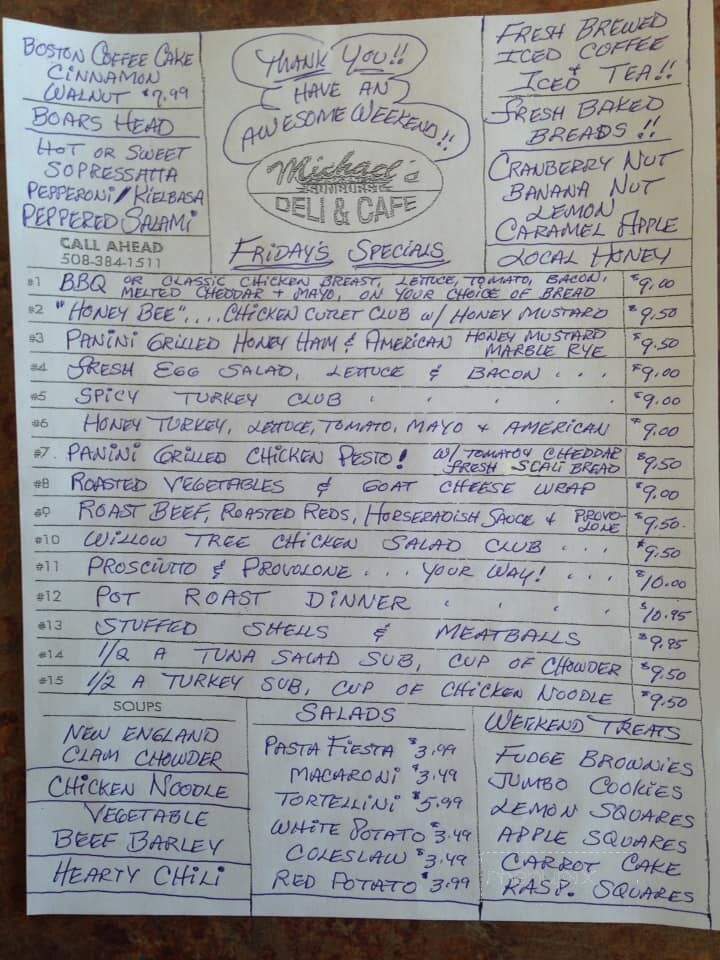 BOSTON COFFEE CAKE
CINNAMON
WALNUT $7.99
BOARS HEAD
HOT OR SWEET
SOPRESSATTA
PEPPERONI/KIELBASA
PEPPERED SALAMI
CALL AHEAD
508-384-1511
THANK YOU!!
HAVE AN
AWESOME WEEKEND!!
Michael's
DELI & CAFE
FRIDAY'S SPECIALS
FRESH BREWED
ICED COFFEE
&
ICED TEA!!
FRESH BAKED
BREADS!!
CRANBERRY NUT
BANANA NUT
LEMON
CARAMEL APPLE
LOCAL HONEY
#1 BBQ OR CLASSIC CHICKEN BREAST, LETTUCE, TOMATO, BACON,
MELTED CHEDDAR + MAYO, ON YOUR CHOICE OF BREAD $9.00
#2 "HONEY BEE".... CHICKEN CUTLET CLUB W/ HONEY MUSTARD $9.50
#3 PANINI GRILLED HONEY HAM & AMERICAN HONEY MUSTARD
MARBLE RYE $9.50
#4 FRESH EGG SALAD, LETTUCE & BACON . . . $9.00
#5 SPICY TURKEY CLUB . . . . . $9.00
#6 HONEY TURKEY, LETTUCE, TOMATO, MAYO & AMERICAN $9.00
#7 PANINI GRILLED CHICKEN PESTO! W/ TOMATO & CHEDDAR
FRESH SCALI BREAD $9.50
#8 ROASTED VEGETABLES & GOAT CHEESE WRAP $9.00
#9 ROAST BEEF, ROASTED REDS, HORSERADISH SAUCE & PROVO-
LONE $9.50.
#10 WILLOW TREE CHICKEN SALAD CLUB . . . $9.50
#11 PROSCIUTTO & PROVOLONE . . . YOUR WAY! . . . $10.00
#12 POT ROAST DINNER . . . . $10.95
#13 STUFFED SHELLS & MEATBALLS $9.95
#14 1/2 A TUNA SALAD SUB, CUP OF CHOWDER $9.50
#15 1/2 A TURKEY SUB, CUP OF CHICKEN NOODLE $9.50
SOUPS
NEW ENGLAND
CLAM CHOWDER
CHICKEN NOODLE
VEGETABLE
BEEF BARLEY
HEARTY CHILI
SALADS
PASTA FIESTA $3.99
MACARONI $3.49
TORTELLINI $5.99
WHITE POTATO $3.49
COLESLAW $3.49
RED POTATO $3.99
WEEKEND TREATS
FUDGE BROWNIES
JUMBO COOKIES
LEMON SQUARES
APPLE SQUARES
CARROT CAKE
RASP. SQUARES